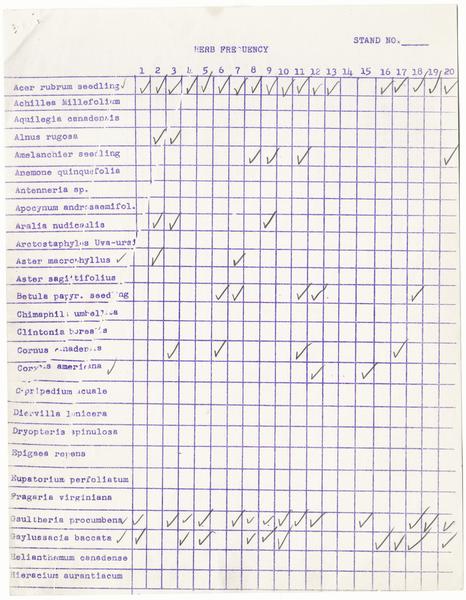 STAND NO.
HERB FREQUENCY
1 2 3 4 5 6 7 8 9 10 11 12 13 14 15 16 17 18 19 20
Acer rubrum seedling ✓
Achillea Millefolium
Aquilegia canadensis
Alnus rugosa
Amelanchier seedling
Anemone quinquefolia
Antenneria sp.
Apocynum androsaemifol.
Aralia nudicaulis
Arctostaphylos Uva-ursi
Aster macrophyllus ✓
Aster sagittifolius
Betula papyr. seedling
Chimaphila umbellata
Clintonia borealis
Cornus canadensis
Corylus americana ✓
Cypripedium acaule
Diervilla lonicera
Dryopteris spinulosa
Epigaea repens
Eupatorium perfoliatum
Fragaria virginiana
Gaultheria procumbens ✓
Gaylussacia baccata ✓
Helianthemum canadense
Hieracium aurantiacum